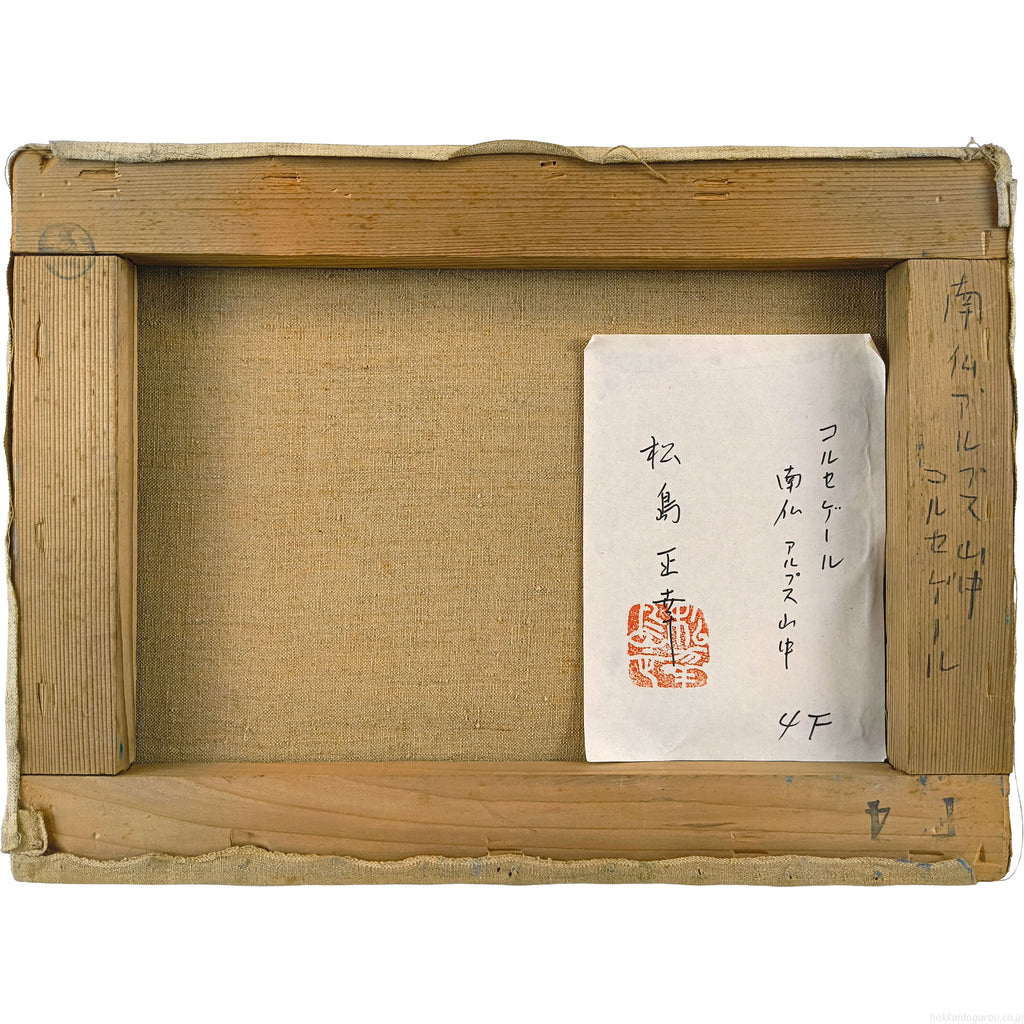 南仏アルプス山中
コルセゲール
コルセゲール
南仏アルプス山中
4F
松島正幸
F 4
hokkaidogarou.co.jp